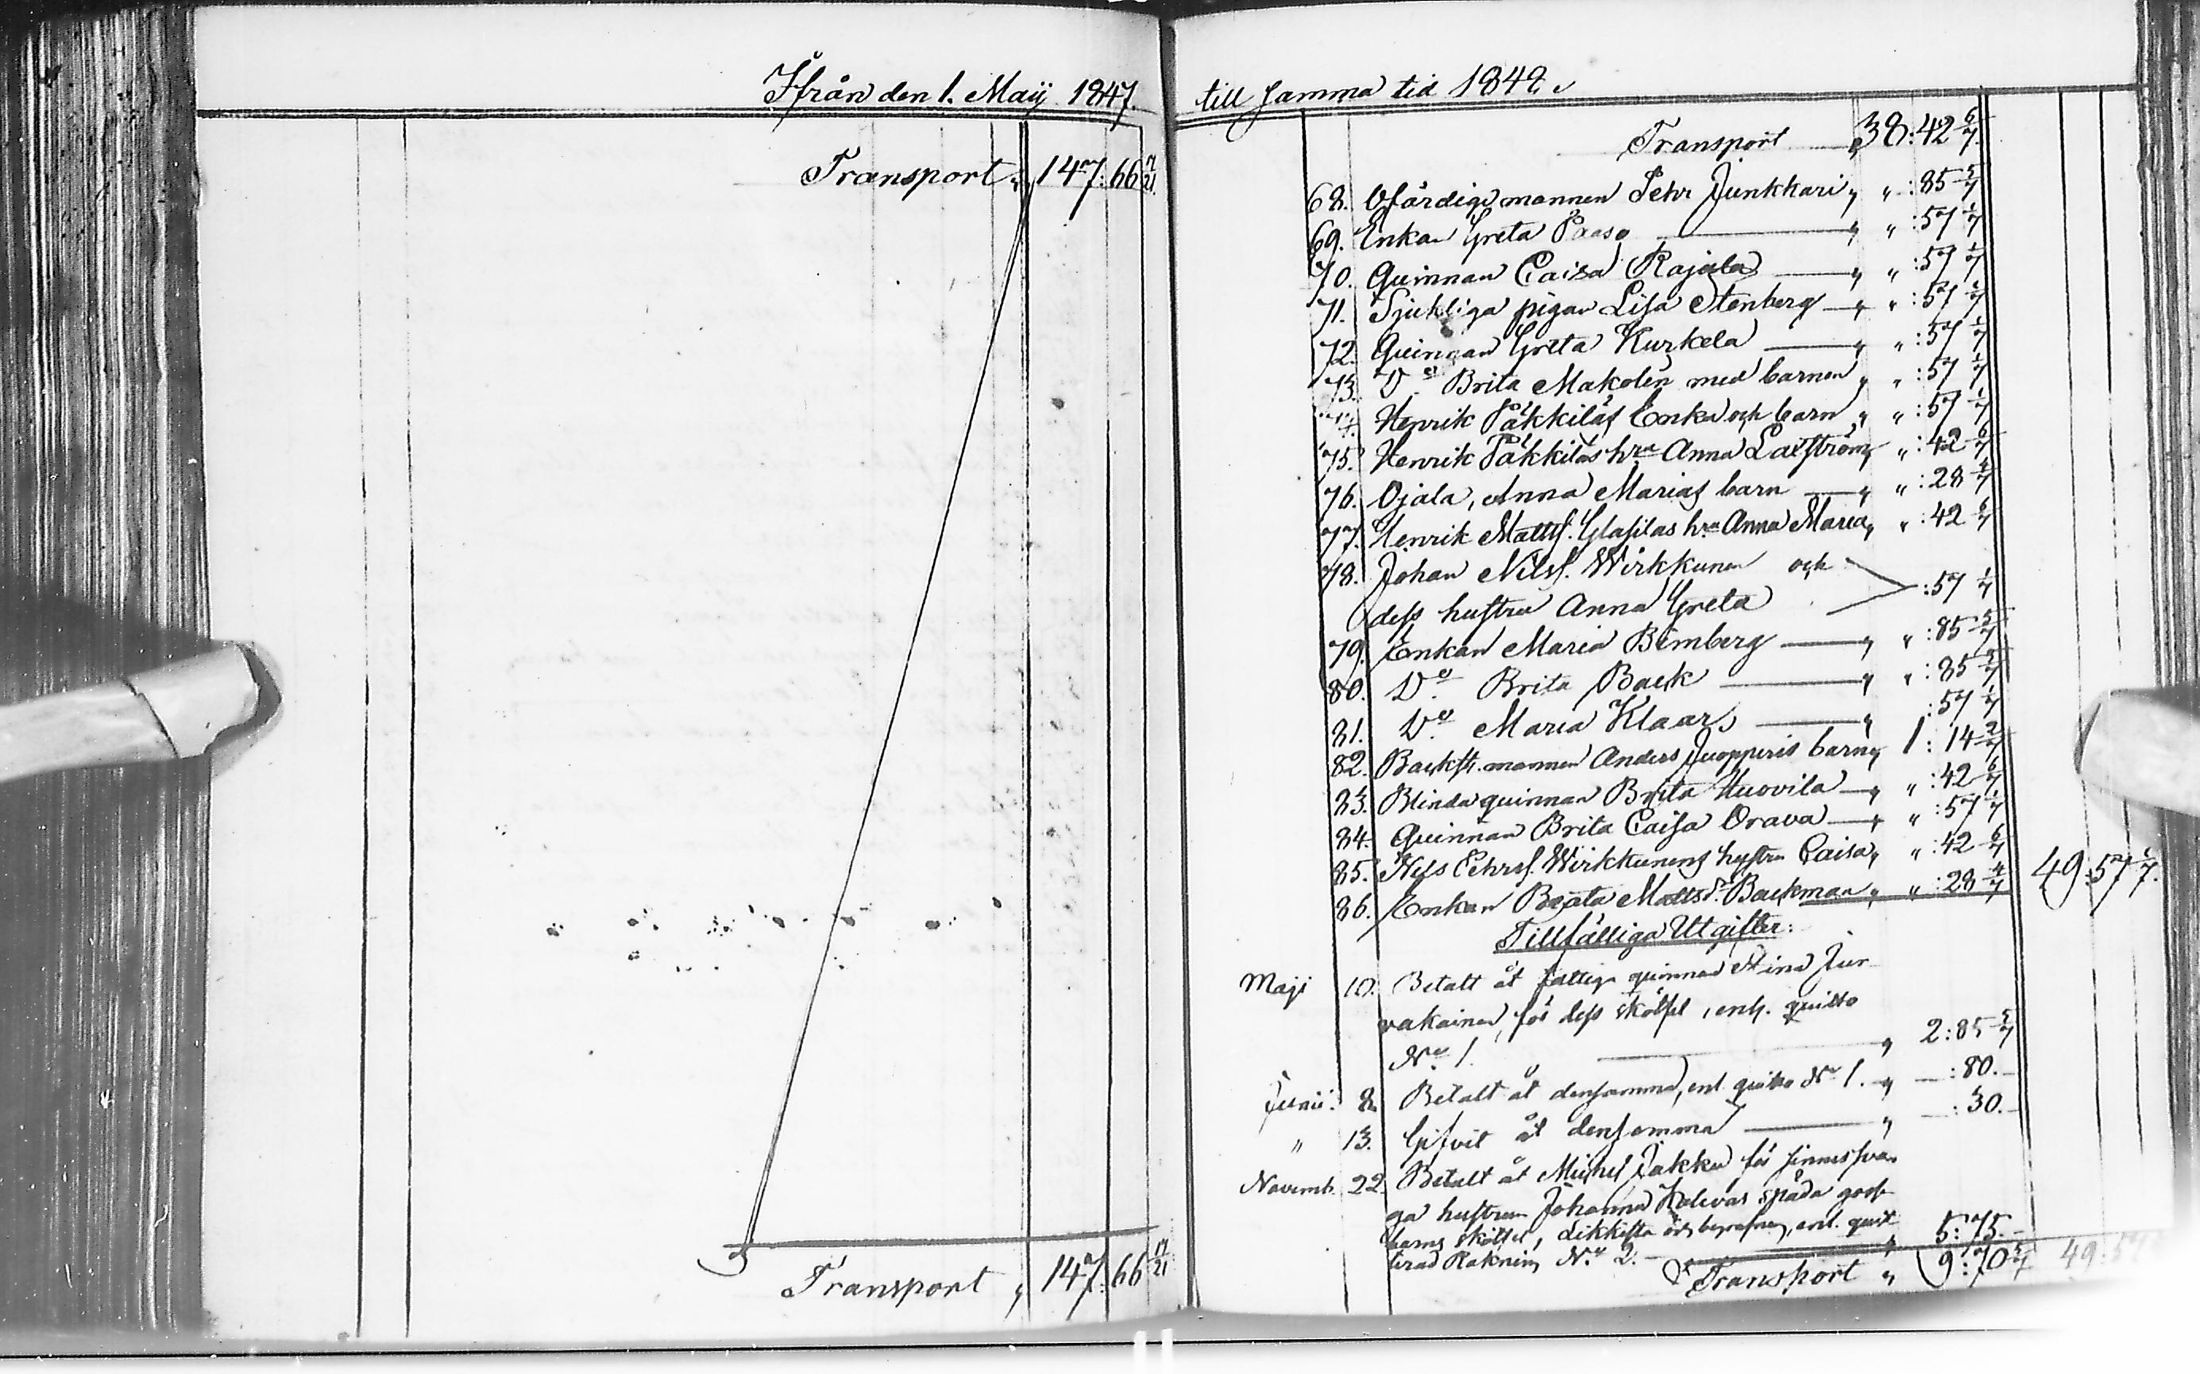 Ifrån den 1. Maij 1847.
Transport „ 147: 66 17/21.
Transport „ 147: 66 17/21
till samma tid 1848.
Transport „ 38: 42 6/7.
68. Ofärdige mannen Pehr Junkkari „ „ : 85 5/7
69. Enkan Greta Paaso — „ „ : 57 1/7
70. Quinnan Caisa Rajala — „ „ : 57 1/7
71. Sjukliga pigan Lisa Stenberg — „ „ : 57 1/7
72. Quinnan Greta Kurkela — „ „ : 57 1/7
73. Do Brita Makolen med barnen „ „ : 57 1/7
74. Henrik Påkkilas Enka och barn „ „ : 57 1/7
75. Henrik Påkkilas hru Anna Laxström „ „ : 42 6/7
76. Ojala, Anna Marias barn — „ „ : 28 4/7
77. Henrik Matts. Glasilas hru Anna Maria „ „ : 42 6/7
78. Johan Nilss. Wirkkunen och
dess hustru Anna Greta : 57 1/7
79. Enkan Maria Bimberg — „ „ : 85 5/7
80. Do Brita Back — „ „ : 85 5/7
81. Do Maria Klaars — „ : 57 1/7
82. Backst. mannen Anders Juopperis barn „ 1: 14 2/7
83. Blinda quinnan Brita Huovila — „ „ : 42 6/7
84. Quinnan Brita Caisa Orava — „ „ : 57 1/7
85. Nils Pehrs. Wirkkunens hustru Caisa „ „ : 42 6/7
86. Enkan Beata Mattsdr. Backman „ „ : 28 4/7 49: 57 1/7.
Tillfälliga Utgifter:
Maji 10. Betalt åt fattiga quinnan Stina Jur-
vakainen, för dess skötsel, enl. quitto
No. 1. — „ 2: 85 5/7
Junii. 8. Betalt åt densamma, enl. quitto No 1. „ — : 80. —
„ 13. Gifvit åt densamma — „ — : 30. —
Novemb. 22. Betalt åt Michel Jakku för sinnessva-
ga hustrun Johanna Kalevas späda goss-
barns skötsel, likkista och begrafning, enl. quit-
terad Räkning No. 2. — „ 5: 75. —
Transport „ 9: 70 5/7 49: 57